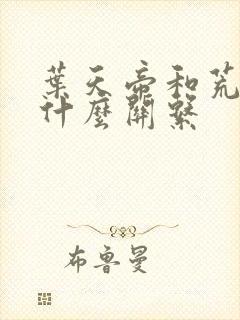 葉天帝和荒
什麼關繫
布魯曼